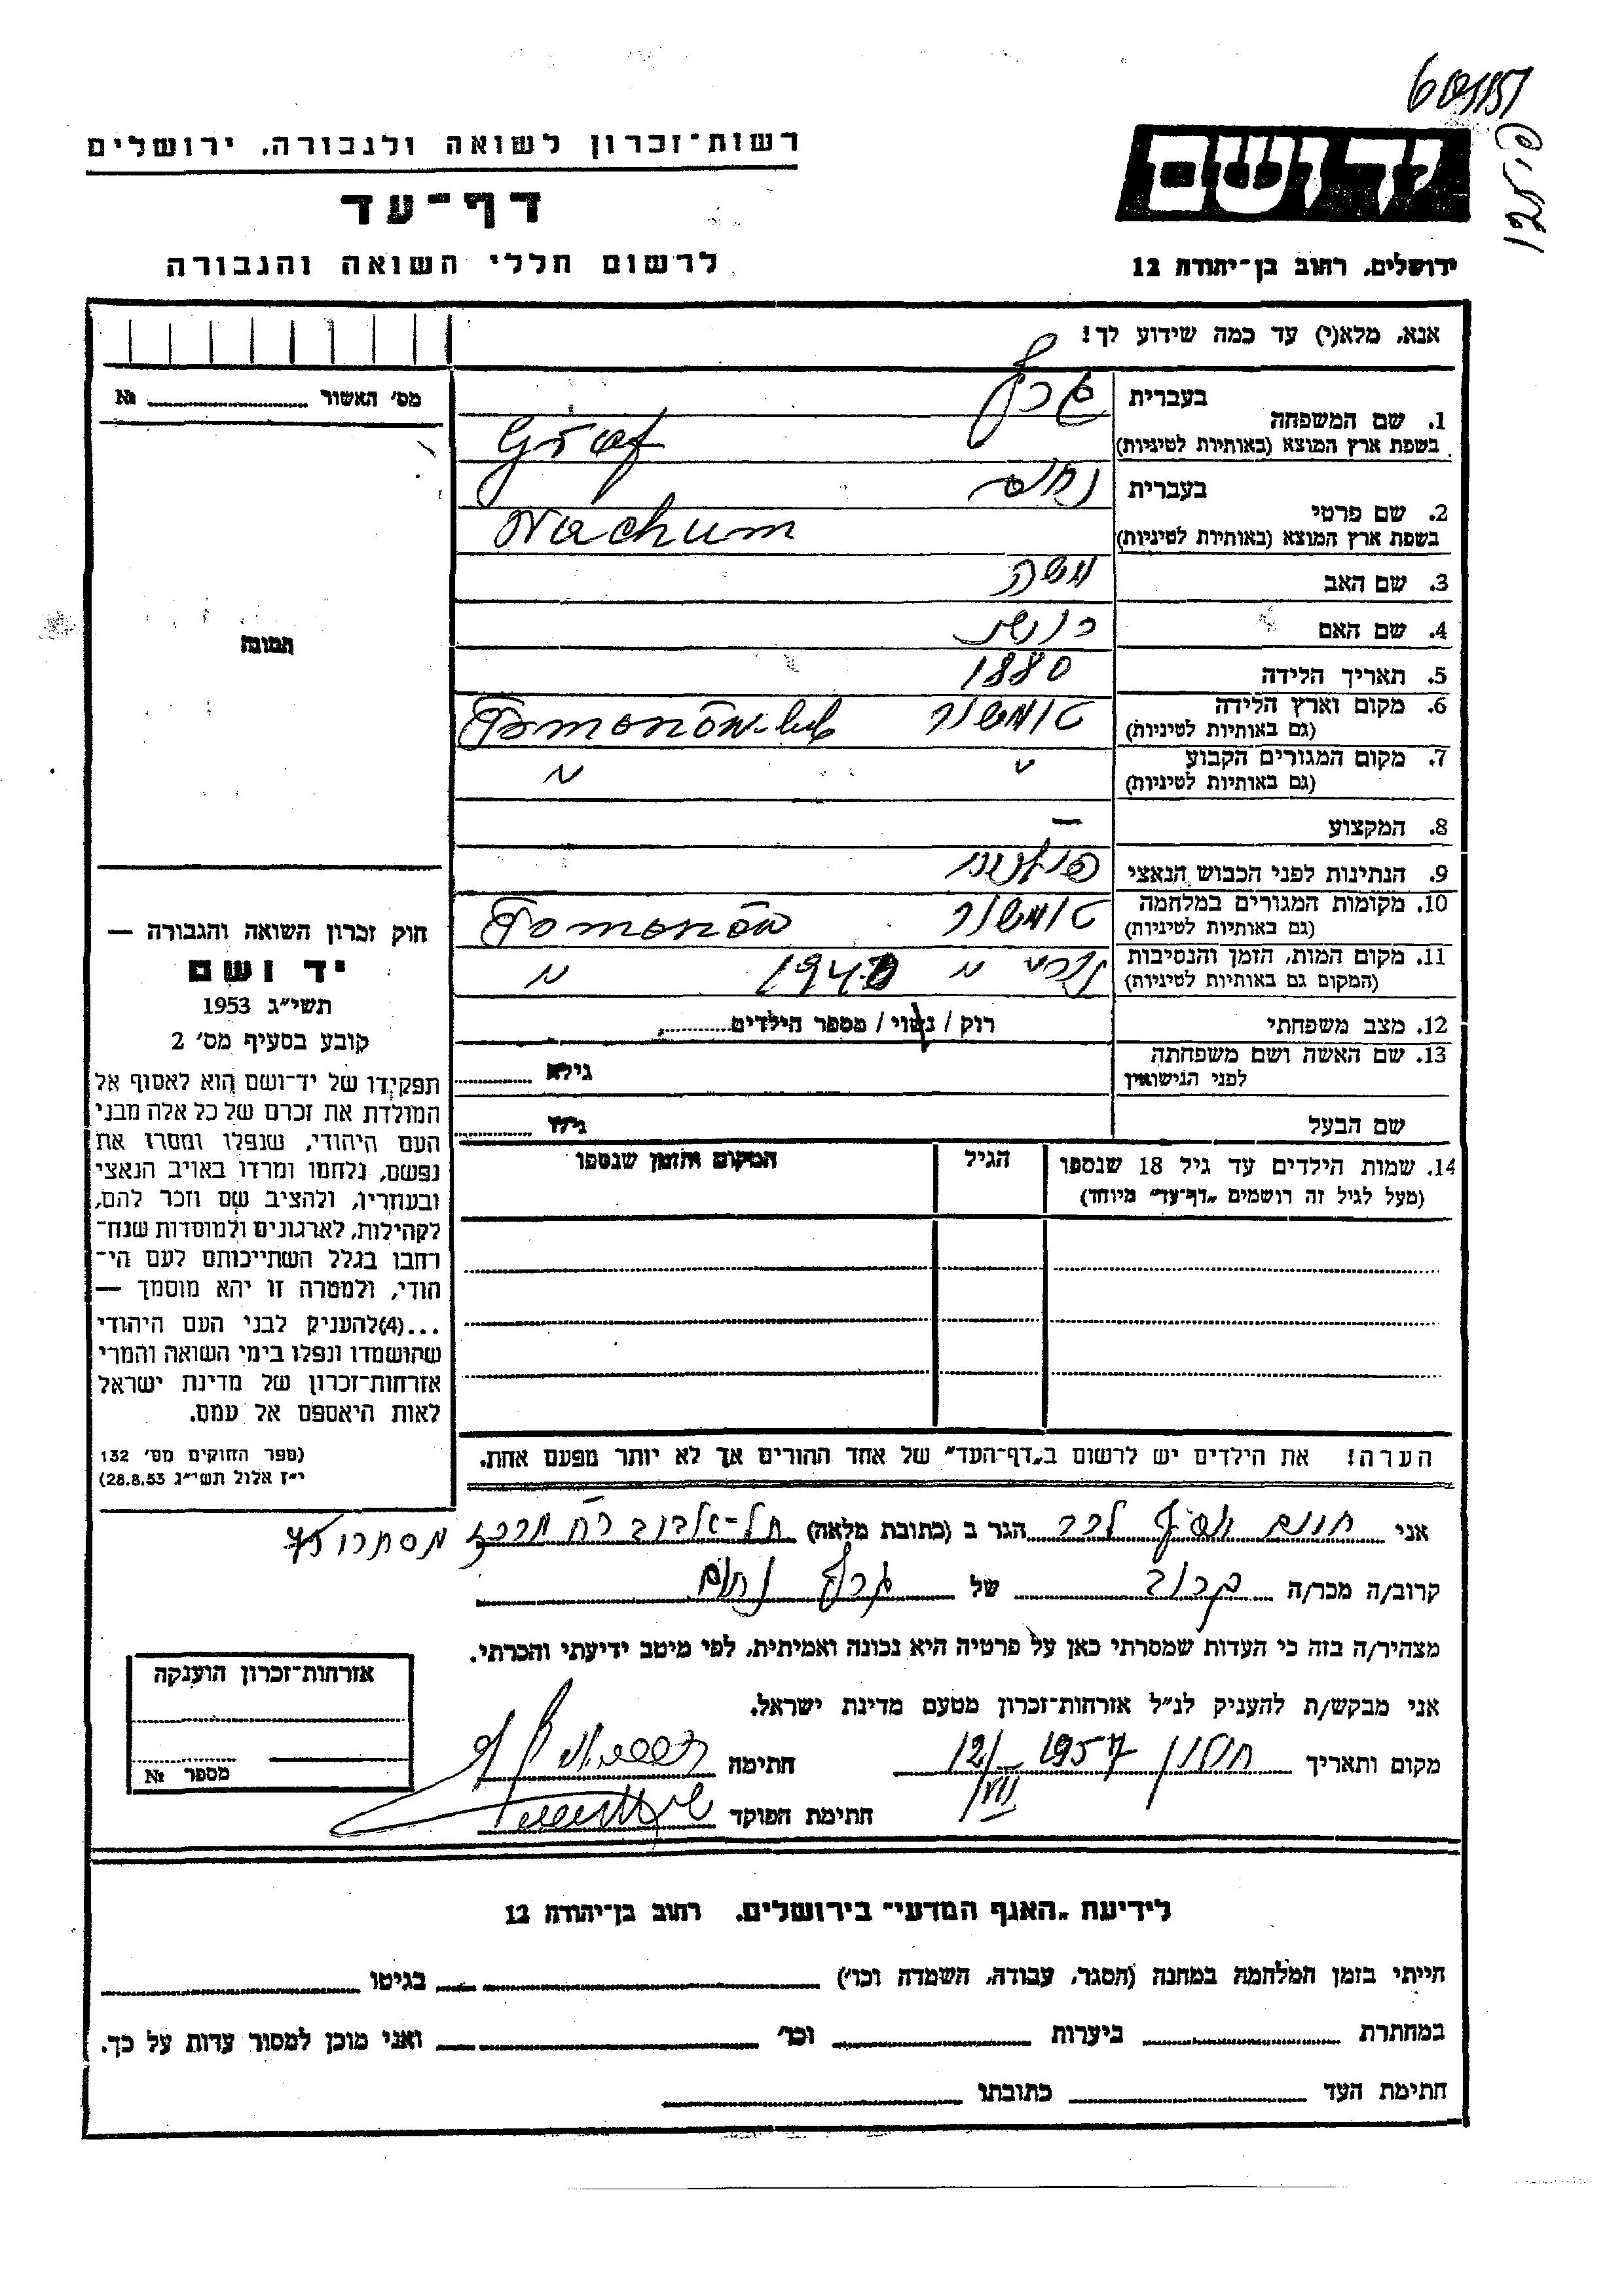 רשות-זכרון לשואה ולגבורה, ירושלים
דף-עד
לרשום חללי השואה והגבורה
יד ושם
ירושלים, רחוב בן-יהודה 12
אנא, מלא(י) עד כמה שידוע לך!
מס' האשור № 
1. שם המשפחה
בעברית גרף
בשפת ארץ המוצא (באותיות לטיניות) Graf
2. שם פרטי
בעברית נחום
בשפת ארץ המוצא (באותיות לטיניות) Nachum
3. שם האב משה
4. שם האם
5. תאריך הלידה 1880
6. מקום וארץ הלידה
(גם באותיות לטיניות)
7. מקום המגורים הקבוע
(גם באותיות לטיניות) " "
8. המקצוע —
9. הנתינות לפני הכבוש הנאצי
10. מקומות המגורים במלחמה
(גם באותיות לטיניות)
11. מקום המות, הזמן והנסיבות
(המקום גם באותיות לטיניות) " "
12. מצב משפחתי רוק / נשוי / מספר הילדים
13. שם האשה ושם משפחתה
לפני הנישואין גילא
שם הבעל גילו
14. שמות הילדים עד גיל 18 שנספו
(מעל לגיל זה רושמים „דף-עד" מיוחד)
הגיל
המקום והזמן שנספו
הערה! את הילדים יש לרשום ב„דף-העד" של אחד ההורים אך לא יותר מפעם אחת.
תמונה
חוק זכרון השואה והגבורה —
יד ושם
תשי"ג 1953
קובע בסעיף מס' 2
תפקידו של יד-ושם הוא לאסוף אל
המולדת את זכרם של כל אלה מבני
העם היהודי, שנפלו ומסרו את
נפשם, נלחמו ומרדו באויב הנאצי
ובעוזריו, ולהציב שם וזכר להם,
לקהילות, לארגונים ולמוסדות שנח-
רחבו בגלל השתייכותם לעם הי-
הודי, ולמטרה זו יהא מוסמך —
...(4)להעניק לבני העם היהודי
שהושמדו ונפלו בימי השואה והמרי
אזרחות-זכרון של מדינת ישראל
לאות היאספם אל עמם.
(ספר החוקים מס' 132
י"ז אלול תשי"ג 28.8.53)
אני הגר ב (כתובת מלאה) תל-אביב
קרוב/ה מכר/ה קרוב של גרף נחום
מצהיר/ה בזה כי העדות שמסרתי כאן על פרטיה היא נכונה ואמיתית, לפי מיטב ידיעתי והכרתי.
אני מבקש/ת להעניק לנ"ל אזרחות-זכרון מטעם מדינת ישראל.
מקום ותאריך חולון 12/VII 1957 חתימה
חתימת הפוקד
אזרחות-זכרון הוענקה
מספר №
לידיעת „האגף המדעי" בירושלים, רחוב בן-יהודה 12
הייתי בזמן המלחמה במחנה (הסגר, עבודה, השמדה וכו') בגיטו
במחתרת ביערות וכו' ואני מוכן למסור עדות על כך.
חתימת העד כתובתו